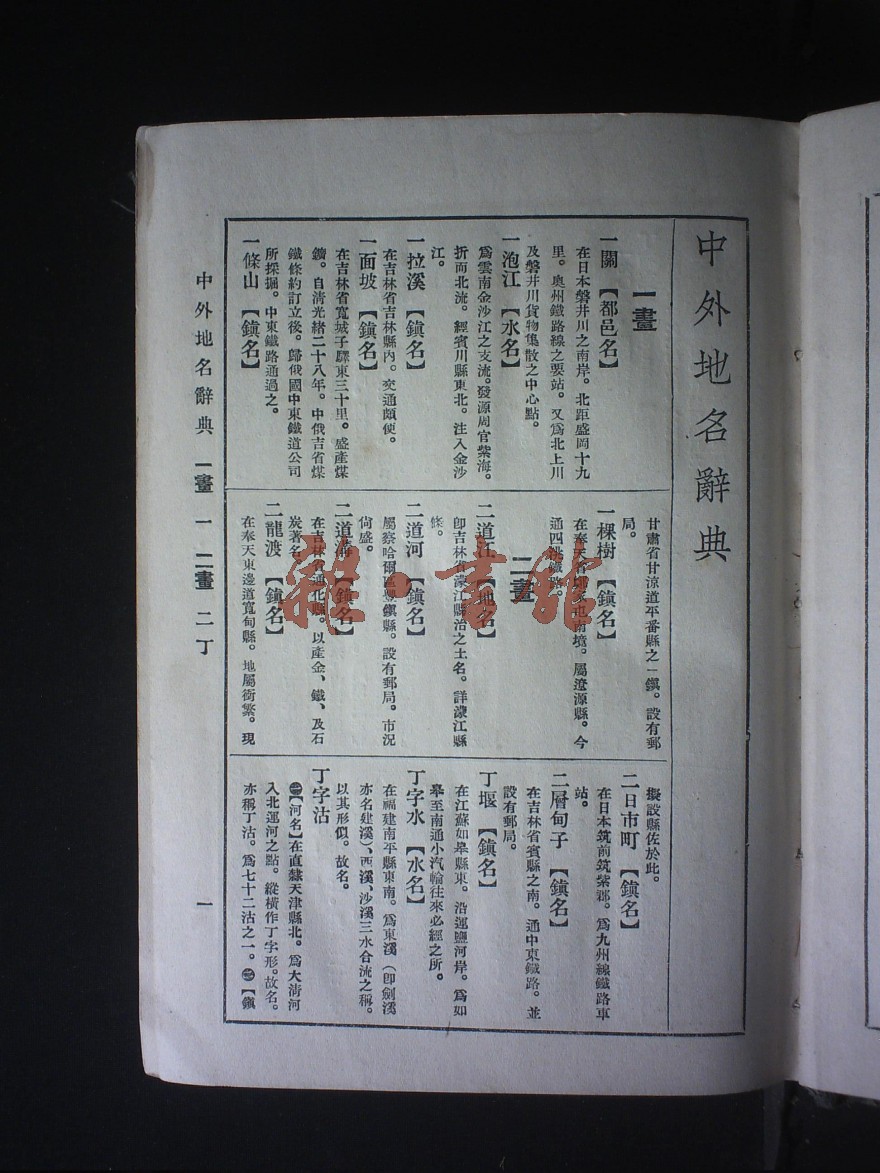 中外地名辭典
一畫
一關 【都邑名】
在日本磐井川之南岸。北距盛岡十九
里。奧州鐵路線之要站。又爲北上川
及磐井川貨物集散之中心點。
一泡江 【水名】
爲雲南金沙江之支流。發源周官紫海。
折而北流。經賓川縣東北。注入金沙
江。
一拉溪 【鎮名】
在吉林省吉林縣內。交通頗便。
一面坡 【鎮名】
在吉林省寬城子驛東三十里。盛產煤
鑛。自清光緒二十八年。中俄吉省煤
鐵條約訂立後。歸俄國中東鐵道公司
所採掘。中東鐵路通過之。
一條山 【鎮名】
甘肅省甘涼道平番縣之一鎮。設有郵
局。
一棵樹 【鎮名】
在奉天省南境。屬遼源縣。今
通四洮鐵路。
二畫
二道江 【地名】
卽吉林省濛江縣治之土名。詳濛江縣
條。
二道河 【鎮名】
屬察哈爾區豐鎮縣。設有郵局。市況
尙盛。
二道溝 【鎮名】
在吉林省通化縣。以產金、鐵、及石
炭著名。
二龍渡 【鎮名】
在奉天東邊道寬甸縣。地屬衝繁。現
擬設縣佐於此。
二日市町 【鎮名】
在日本筑前筑紫郡。爲九州線鐵路車
站。
二層甸子 【鎮名】
在吉林省賓縣之南。通中東鐵路。並
設有郵局。
丁堰 【鎮名】
在江蘇如皋縣東。沿運鹽河岸。爲如
皋至南通小汽輪往來必經之所。
丁字水 【水名】
在福建南平縣東南。爲東溪（卽劍溪
亦名建溪）、西溪、沙溪三水合流之稱。
以其形似。故名。
丁字沽
㊀【河名】在直隸天津縣北。爲大清河
入北運河之點。縱橫作丁字形。故名。
亦稱丁沽。爲七十二沽之一。㊁【鎮
中外地名辭典 一畫 一 二畫 二丁
一
雜·書館